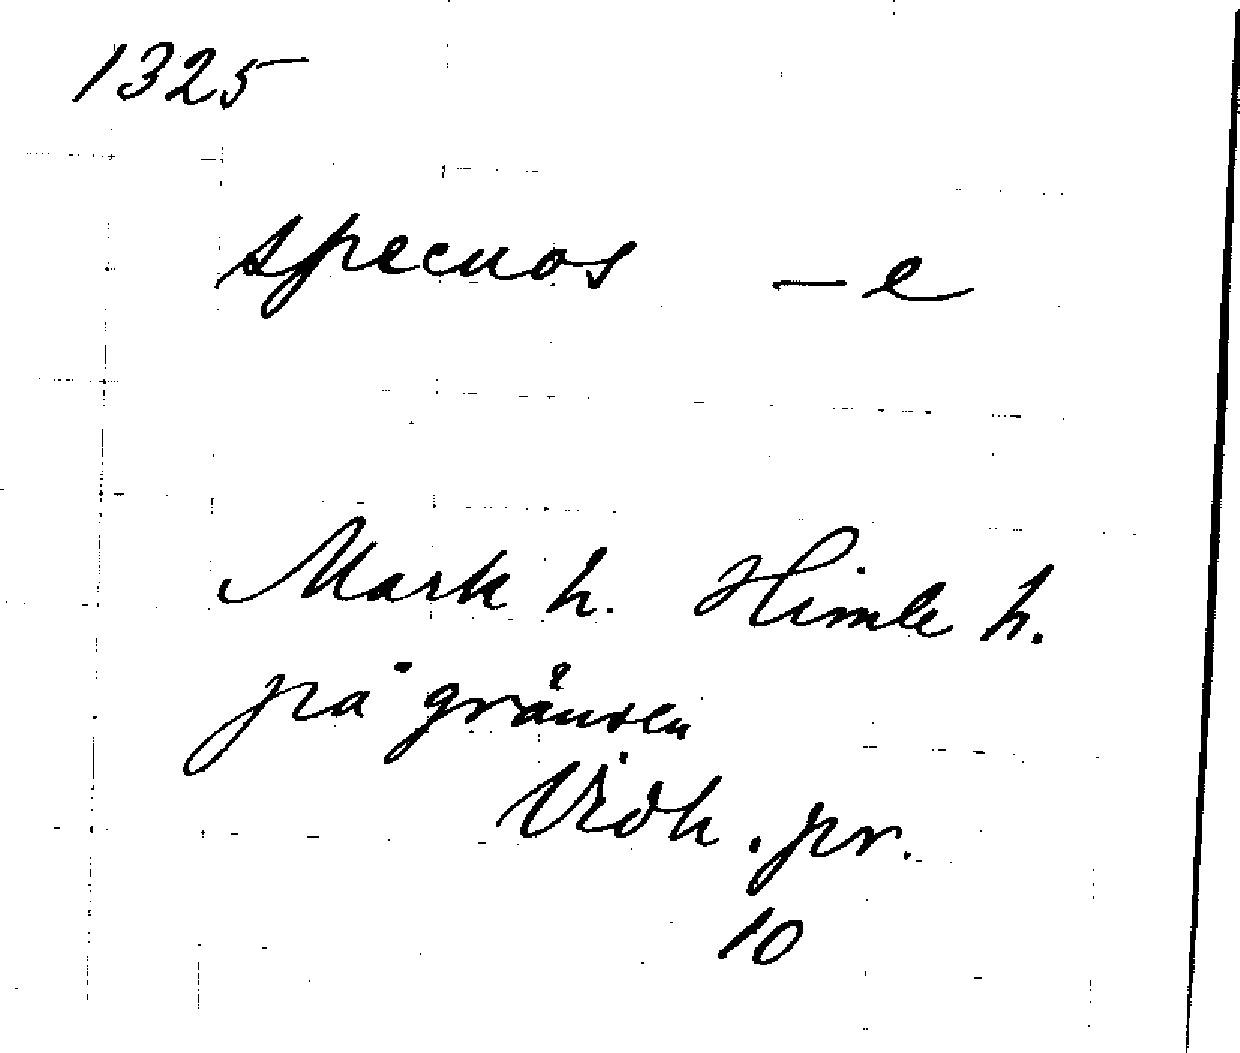 1325
specuos –e
Mark h. Himle h.
på gränsen
Vidh. pr.
10